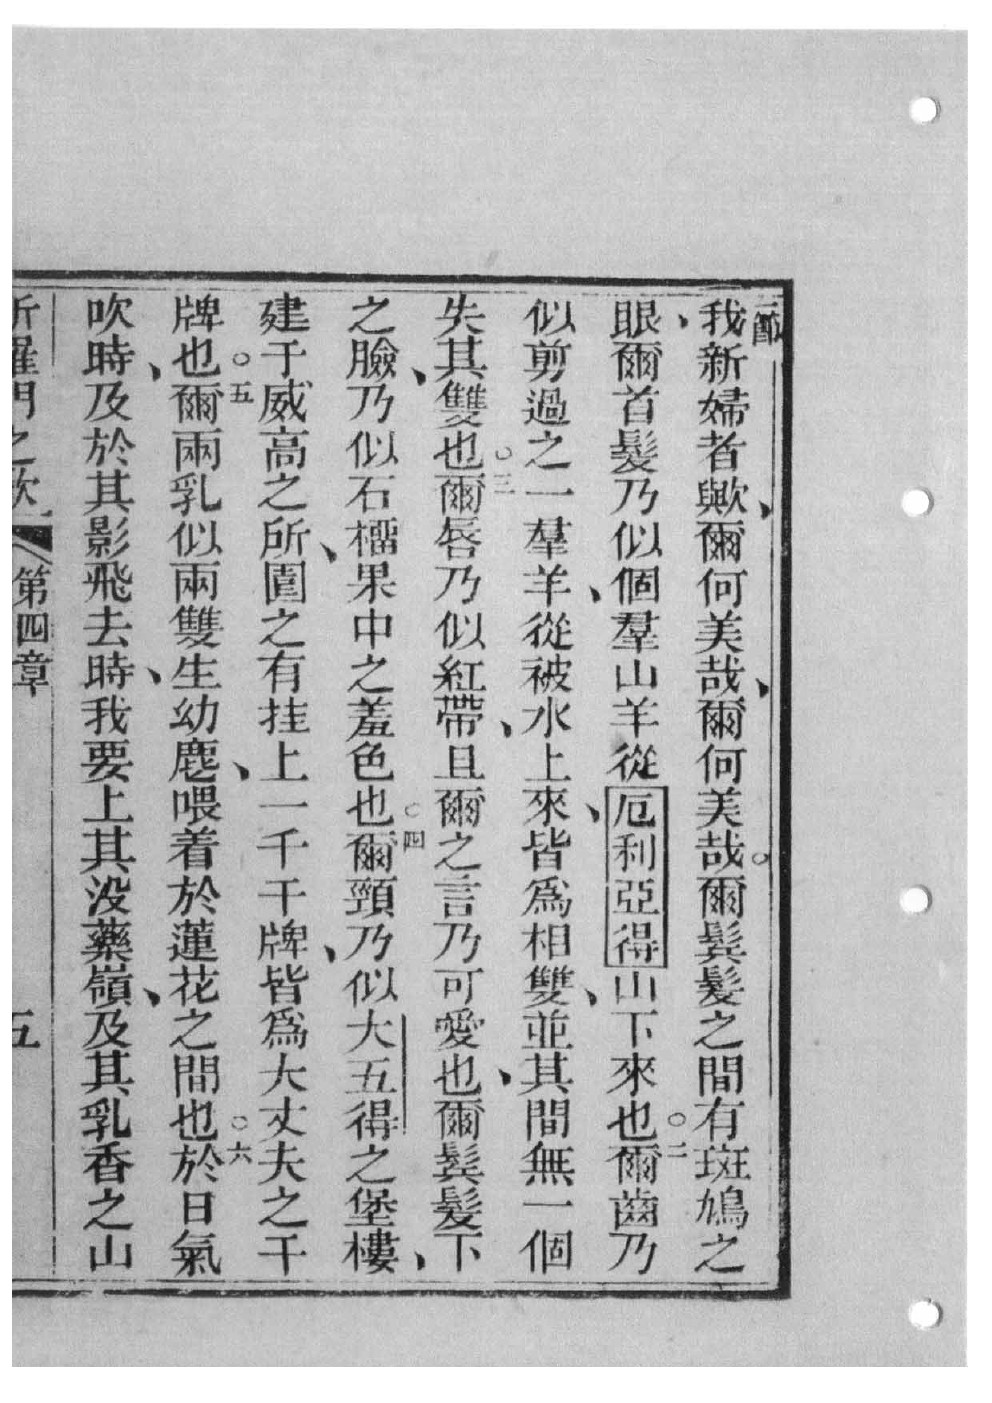 我新婦者歟、爾何美哉、爾何美哉。爾鬂髮之間有斑鳩之
眼、爾首髮乃似個羣山羊從厄利亞得山下來也。二爾齒乃
似剪過之一羣羊、從被水上來、皆爲相雙、並其間無一個
失其雙也。三爾唇乃似紅帶、且爾之言乃可愛也、爾鬂髮下
之臉、乃似石橊果中之羞色也。四爾頸乃似大五得之堡樓、
建于威高之所、圍之有挂上一千干牌、皆爲大丈夫之干
牌也。五爾兩乳似兩雙生幼麀、喂着於蓮花之間也。六於日氣
吹時、及於其影飛去時、我要上其没藥嶺、及其乳香之山
所羅門之歌 第四章 五